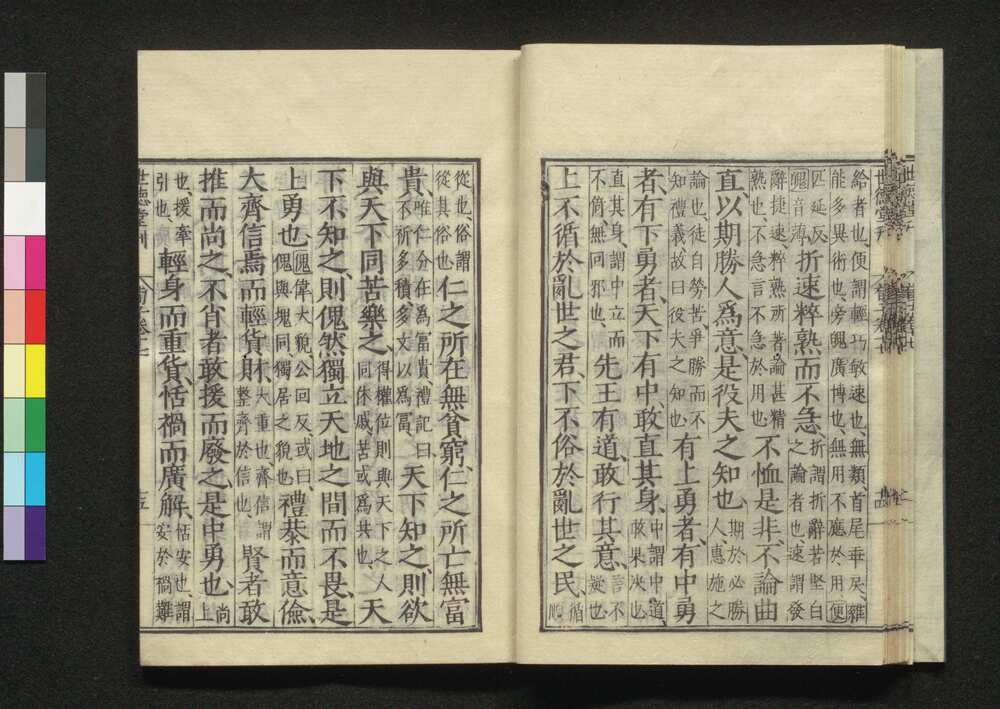 給者也、便謂輕巧敏速也、無類首尾乖戾、雜
能多異術也、旁魄廣博也、無用不應於用、便
匹延反
魄音薄、析速粹熟而不急、析謂析辭若堅白
之論者也、速謂發
辭捷速、粹熟所著論甚精
熟也、不急言不急於用也 不恤是非、不論曲
直、以期勝人爲意、是役夫之知也 期於必勝
人、惠施之
論也、徒自勞苦爭勝而不
知禮義、故曰役夫之知也 有上勇者、有中勇
者、有下勇者、天下有中敢直其身、中謂中道、
敢果決也
直其身、謂中立而
不倚、無回邪也、 先王有道、敢行其意、言不
疑也
上不循於亂世之君、下不俗於亂世之民、循
順
從也、俗謂
從其俗也 仁之所在無貧窮、仁之所亡無富
貴、唯仁分在爲富貴、禮記曰
不祈多積、多文以爲富、 天下知之、則欲
與天下同苦樂之、得權位則與天下之人
同休戚、苦或爲共也、 天
下不知之、則傀然獨立天地之間而不畏、是
上勇也 傀偉大貌、公回反、或曰
傀與塊同、獨居之貌也 禮恭而意儉、
大齊信焉而輕貨財、大重也、齊信謂
整齊於信也、 賢者敢
推而尚之、不肖者敢援而廢之、是中勇也、尚
上
也、援牽
引也、 輕身而重貨、恬禍而廣解、恬安也、謂
安於禍難
世德堂刊